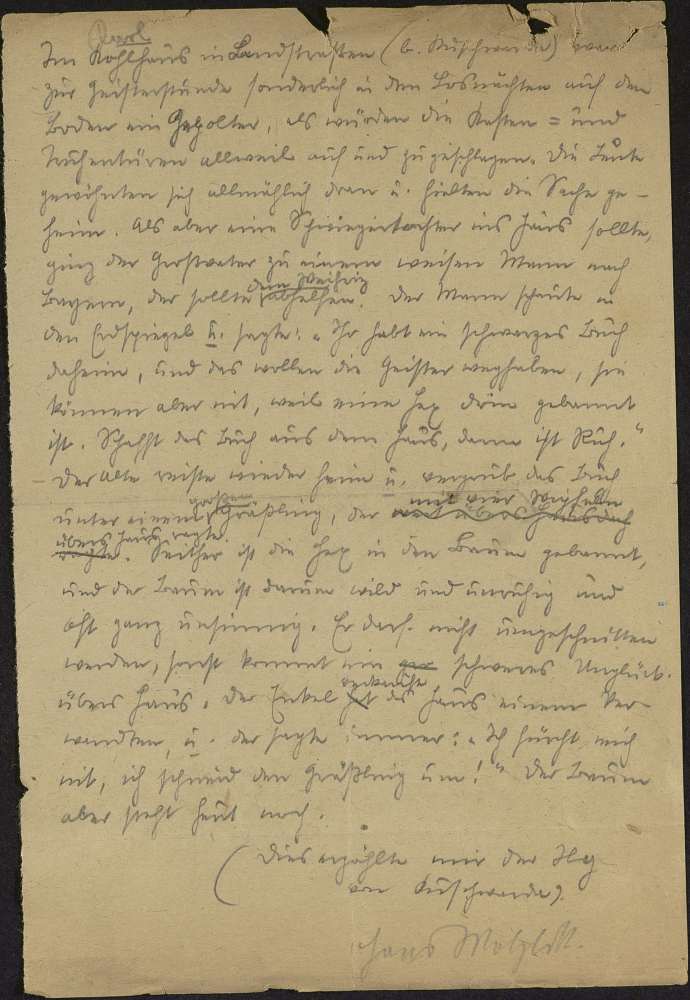 Im Kohlhaus in Landstraßen (b. Kuschwarda) war
zur Geisterstunde sonderlich in den Losnächten auf dem
Boden ein Gepolter, als würden die Kasten = und
Truhentüren allweil auf und zugeschlagen. Die Leute
gewöhnten sich allmählich dran u. hielten die Sache ge-
heim. Als aber eine Schwiegertochter ins Haus sollte,
ging der Großvater zu einem weisen Mann nach
Bayern, der sollte dem abhelfen. Der Mann schaute in
den Erdspiegel u. sagte: „Ihr habt ein schwarzes Buch
daheim, und das wollen die Geister weghaben, sie
können aber nit, weil eine Hex drin gebannt
ist. Schafft das Buch aus dem Haus, dann ist Ruh.“
Der Alte reiste wieder heim u. vergrub das Buch
unter einem großen Gräßling, der mit vier
übers Haus ragte. Seither ist die Hex in den Baum gebannt,
und der Baum ist darum wild und unruhig und
oft ganz unsinnig. Er darf nicht umgeschnitten
werden, sonst kommt ein schweres Unglück
übers Haus. Der Enkel verkaufte das Haus einem Ver-
wandten, u. der sagte immer: „Ich fürcht mich
nit, ich schneid den Gräßling um!“ Der Baum
aber steht heut noch.
(Dies erzählte mir der
von Kuschwarda).
Hans Watzlik.